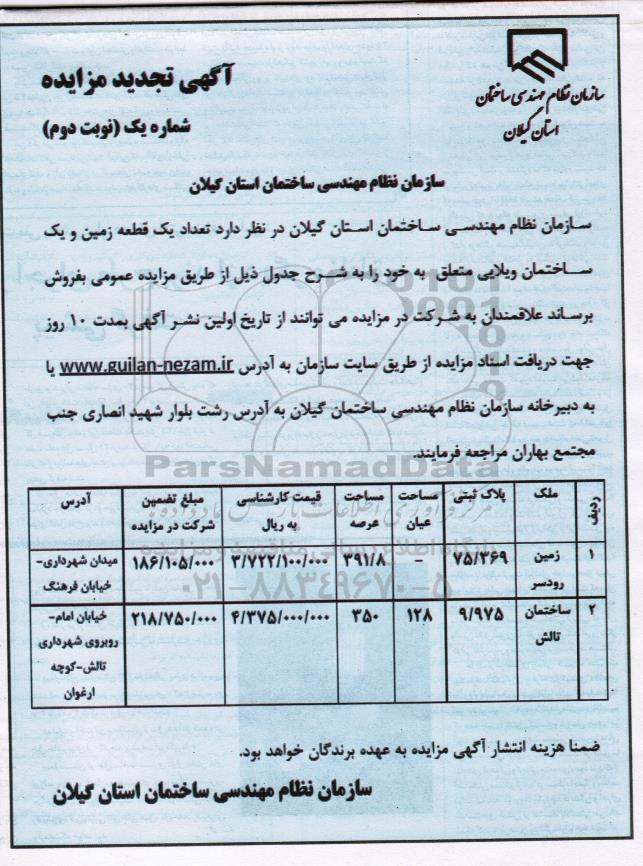 سازمان نظام مهندسی ساختمان
استان گیلان
آگهی تجدید مزایده
شماره یک (نوبت دوم)
سازمان نظام مهندسی ساختمان استان گیلان
سازمان نظام مهندسی ساختمان استان گیلان در نظر دارد تعداد یک قطعه زمین و یک
ساختمان ویلایی متعلق به خود را به شرح جدول ذیل از طریق مزایده عمومی بفروش
برساند علاقمندان به شرکت در مزایده می توانند از تاریخ اولین نشر آگهی بمدت ۱۰ روز
جهت دریافت اسناد مزایده از طریق سایت سازمان به آدرس www.guilan-nezam.ir یا
به دبیرخانه سازمان نظام مهندسی ساختمان گیلان به آدرس رشت بلوار شهید انصاری جنب
مجتمع بهاران مراجعه فرمایند.
ParsNamadData
ردیف ملک پلاک ثبتی مساحت عیان مساحت عرصه قیمت کارشناسی به ریال مبلغ تضمین شرکت در مزایده آدرس
۱ زمین رودسر ۷۵/۳۶۹ - ۳۹۱/۸ ۳/۷۲۲/۱۰۰/۰۰۰ ۱۸۶/۱۰۵/۰۰۰ میدان شهرداری- خیابان فرهنگ
۲ ساختمان تالش ۹/۹۷۵ ۱۲۸ ۳۵۰ ۴/۳۷۵/۰۰۰/۰۰۰ ۲۱۸/۷۵۰/۰۰۰ خیابان امام- روبروی شهرداری تالش-کوچه ارغوان
۰۲۱-۸۸۳۴۹۶۷۰-۵
ضمنا هزینه انتشار آگهی مزایده به عهده برندگان خواهد بود.
سازمان نظام مهندسی ساختمان استان گیلان